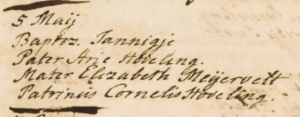 5 Maij
Baptoz. Jannigje
Pater Arie Hoveling.
Mater Elizabeth Meijervelt
Patrinus Cornelis Hoveling.